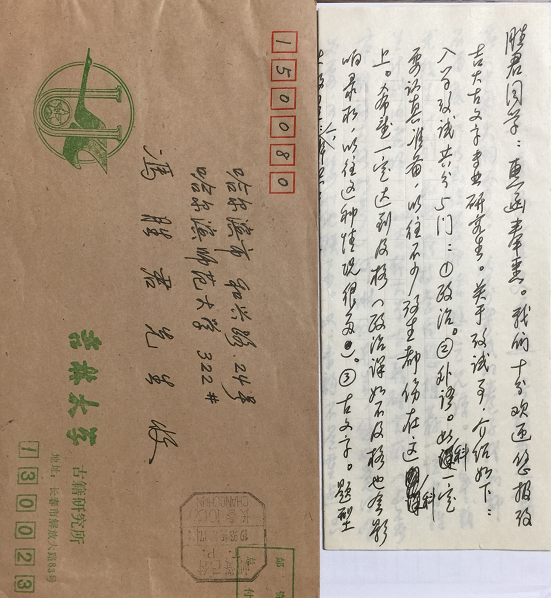 150080
哈尔滨市 和兴路 24号
哈尔滨师范大学 322#
冯胜君先生收
吉林大学 古籍研究所
地址：长春市解放大路83号
130023
CHANGCHUN
胜君同学：惠函奉悉。我们十分欢迎您报考
吉大古文字专业研究生。关于考试事，介绍如下：
入学考试共分5门：①政治。②外语。此科一定
要认真准备，以往不少考生都伤在这科
上。希望一定达到及格（政治课如不及格也会影
响录取，以往这种情况很多）。③古文字。题型